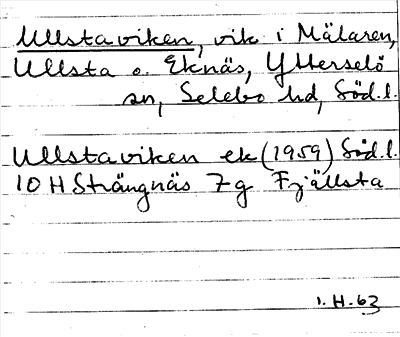 Ullstaviken, vik i Mälaren,
Ullsta o. Eknäs, Ytterselö
sn, Selebo hd, Söd.l.
Ullstaviken ek (1959) Söd.l.
10 H Strängnäs 7g Fjällsta
1.H.63